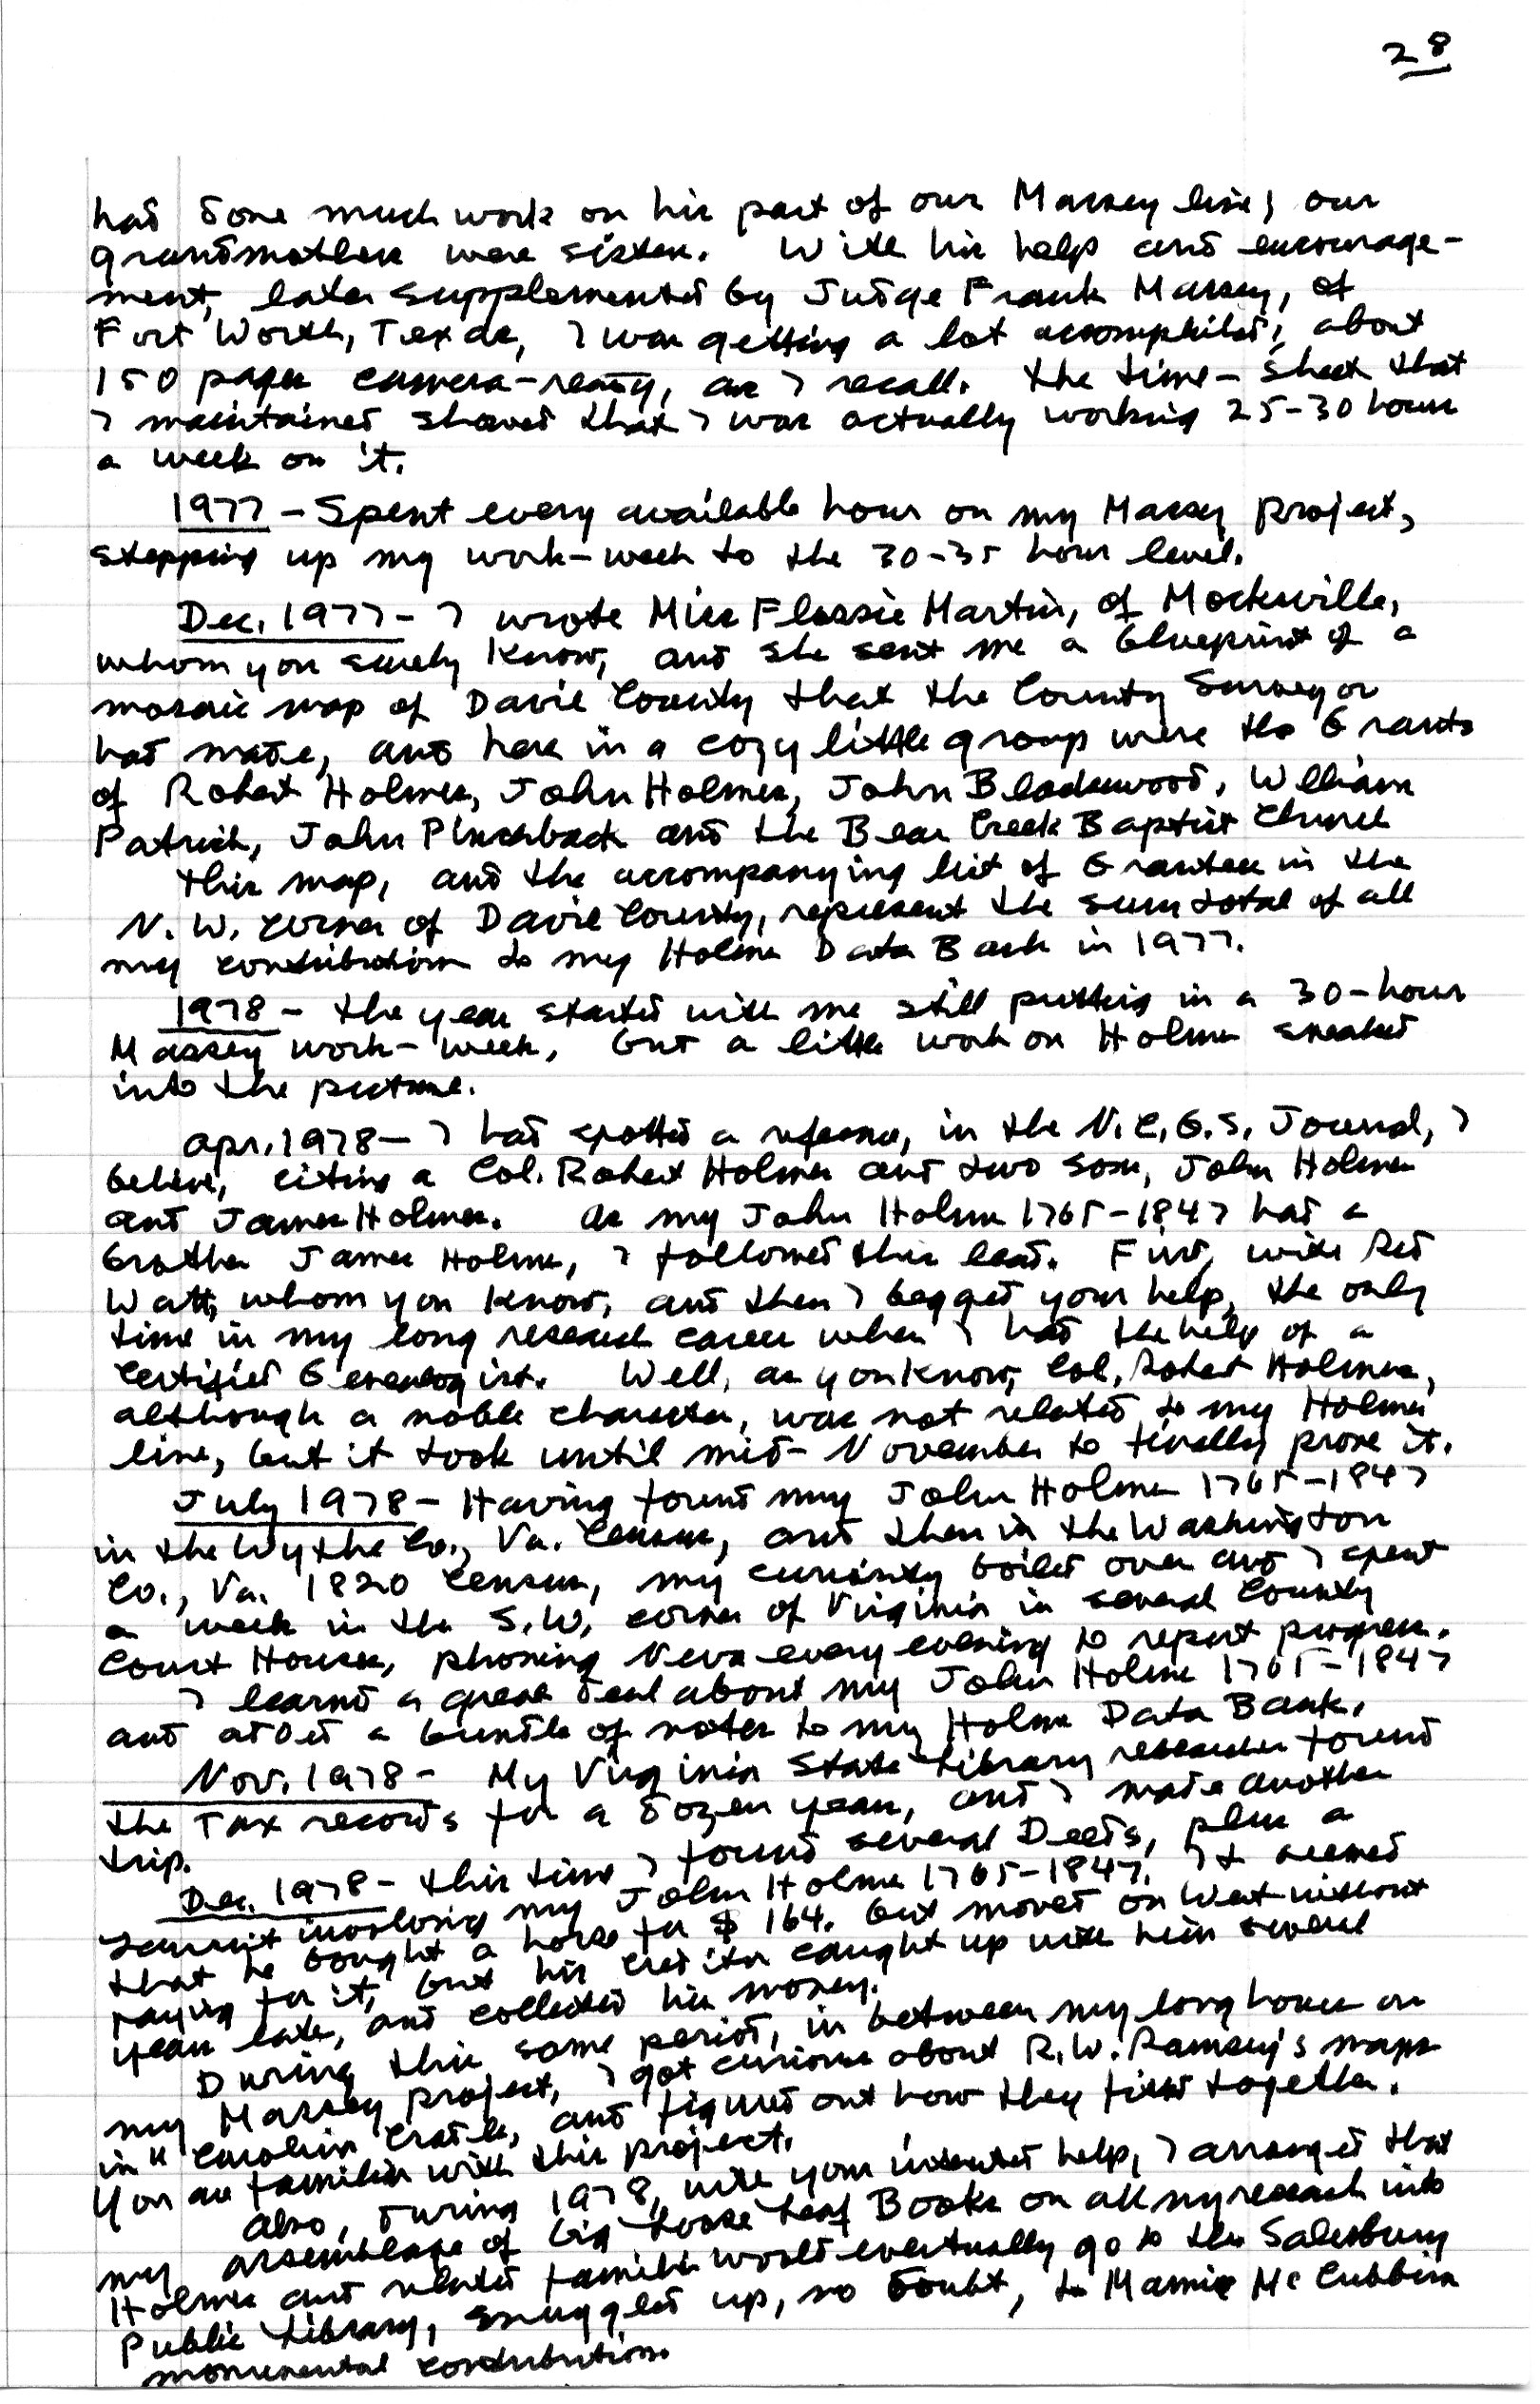 28
had done much work on his part of our Massey line; our
grandmothers were sisters. With his help and encourage-
ment, later supplemented by Judge Frank Massey, of
Fort Worth, Texas, I was getting a lot accomplished, about
150 pages camera-ready, as I recall. The time-sheet that
I maintained showed that I was actually working 25-30 hours
a week on it.
1977 - Spent every available hour on my Massey project,
stepping up my work-week to the 30-35 hour level.
Dec. 1977 - I wrote Miss Flossie Martin, of Mocksville,
whom you surely know, and she sent me a blueprint of a
mosaic map of Davie County that the County Surveyor
had made, and here in a cozy little group were the Grants
of Robert Holmes, John Holmes, John Blackwood, William
Patrick, John Pinchback and the Bear Creek Baptist Church
This map, and the accompanying list of Grantees in the
N.W. corner of Davie County, represent the sum total of all
my contribution to my Holmes Data Bank in 1977.
1978 - The year started with me still putting in a 30-hour
Massey work-week, but a little work on Holmes sneaked
into the picture.
Apr. 1978 - I had spotted a reference, in the N.C.G.S. Journal, I
believe, citing a Col. Robert Holmes and two sons, John Holmes
and James Holmes. As my John Holmes 1765-1847 had a
brother James Holmes, I followed this lead. First, with Red
Watt, whom you know, and then I begged your help, the only
time in my long research career when I had the help of a
Certified Genealogist. Well, as you know, Col. Robert Holmes,
although a noble character, was not related to my Holmes
line, but it took until mid-November to finally prove it.
July 1978 - Having found my John Holmes 1765-1847
in the Wythe Co., Va. Census, and then in the Washington
Co., Va. 1820 Census, my curiosity boiled over and I spent
a week in the S.W. corner of Virginia in several County
Court Houses, phoning Neva every evening to report progress.
I learned a great deal about my John Holmes 1765-1847
and added a bundle of notes to my Holmes Data Bank.
Nov. 1978 - My Virginia State Library researcher found
the Tax records for a dozen years, and I made another
trip.
Dec. 1978 - This time I found several Deeds, plus a
lawsuit involving my John Holmes 1765-1847. It seemed
that he bought a horse for $164. but moved on West without
paying for it, but his creditor caught up with him several
years later, and collected his money.
During this same period, in between my long hours on
my Massey project, I got curious about R.W. Ramsey's maps
in "Carolina Cradle, and figured out how they fitted together.
You are familiar with this project.
Also, during 1978, with your interested help, I arranged that
my assemblage of big Loose Leaf Books on all my research into
Holmes and related families would eventually go to the Salisbury
Public Library, snuggled up, no doubt, to Mamie McCubbins
monumental contribution.